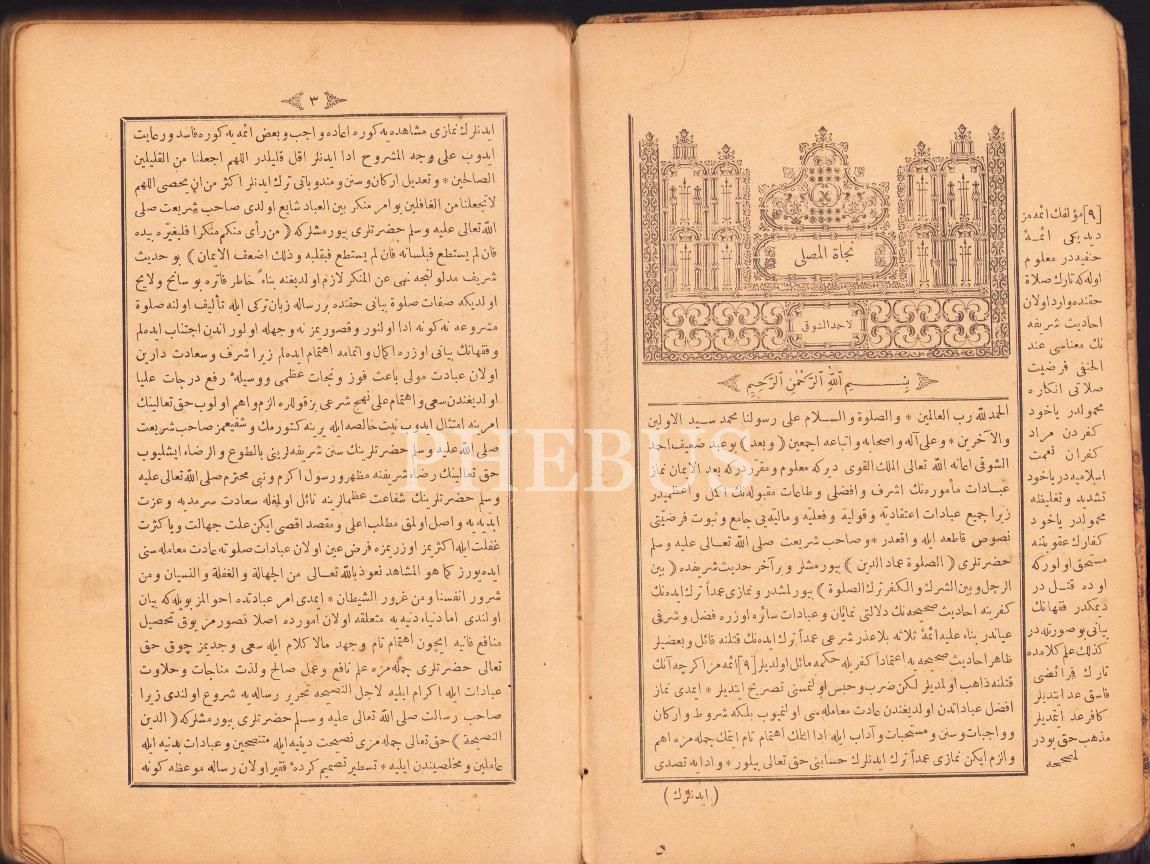 نجاة المصلی
لاحمد الشوقی
بِسْمِ اللّٰهِ الرَّحْمٰنِ الرَّحِيمِ
الحمدلله رب العالمين * والصلوة والسلام علی رسولنا محمد سيد الاولين
والآخرين * وعلی آله واصحابه واتباعه اجمعين ( وبعد ) بو عبد ضعيف احمد
الشوقی اعانه الله تعالی الملك القوی ديركه معلوم ومقرردركه بعد الايمان نماز
عبادات مأموره‌نك اشرف وافضلی وطاعات مقبوله‌نك اكمل واعظميدر
زيرا جميع عبادات اعتقاديه وقوليه وفعليه وماليه‌يی جامع وثبوت فرضيتی
نصوص قاطعه ايله واقعدر * وصاحب شريعت صلی الله تعالی عليه وسلم
حضرتلری ( الصلوة عماد الدين ) بيورمشلر وبر آخر حديث شريفده ( بين
الرجل وبين الشرك والكفر ترك الصلوة ) بيورلمشدر ونمازی عمداً ترك ايده‌نك
كفرينه احاديث صحيحه‌نك دلالتی نمايان وعبادات سائره اوزره فضل وشرفی
عياندر بناء عليه ائمهٔ ثلاثه بلاعذر شرعی عمداً ترك ايده‌نك قتلنه قائل وبعضيلر
ظاهر احاديث صحيحه‌يه اعتماداً كفريله حكمه مائل اولديلر [٩] ائمه‌مز اكرچه آنك
قتلنه ذاهب اولمديلر لكن ضرب وحبس اولنمسنی تصريح ايتديلر * ايمدی نماز
افضل عباداتدن اولديغندن عادت معامله‌سی اولنميوب بلكه شروط واركان
وواجبات وسنن ومستحبات وآداب ايله ادا ايتمك اهتمام تام ايتمك جمله‌مزه اهم
والزم ايكن نمازی عمداً ترك ايدنلرك حسابنی حق تعالی بيلور * وادايه تصدی
( ايدنلرك )
[٩] مؤلفك ائمه‌مز
ديديكی ائمهٔ
حنفيه‌در معلوم
اوله‌كه تارك صلاة
حقنده وارد اولان
احاديث شريفه
نك معناسی عند
الحنفی فرضيت
صلاتی انكاره
محمولدر ياخود
كفردن مراد
كفران نعمت
اسلاميه‌در ياخود
تشديد وتغليظه
محمولدر ياخود
كفارك عقوبتنه
مستحق اولوركه
او ده قتلدر
ديمكدر فقهانك
بيانی بوصورتله‌در
كذلك علم كلامده
تارك فرائضی
فاسق عد ايتديلر
كافر عد ايتمديلر
مذهب حق بودر
لمصححه
٣
ايدنلرك نمازی مشاهده‌يه كوره اعاده واجب وبعض ائمه‌يه كوره فاسد ورعايت
ايدوب علی وجه المشروح ادا ايدنلر اقل قليلدر اللهم اجعلنا من القليلين
الصالحين * وتعديل اركان وسنن ومندوباتی ترك ايدنلر اكثر من ان يحصی اللهم
لاتجعلنا من الغافلين بو امر منكر بين العباد شايع اولدی صاحب شريعت صلی
الله تعالی عليه وسلم حضرتلری بيورمشلركه ( من رأی منكم منكرا فليغيره بيده
فان لم يستطع فبلسانه فان لم يستطع فبقلبه وذلك اضعف الايمان ) بو حديث
شريف مدلولنجه نهی عن المنكر لازم اولديغنه بناءً خاطر فاتره بو سانح ولايح
اولديكه صفات صلوة بيانی حقنده بر رساله زبان تركی ايله تأليف اولنه صلوة
مشروعه نه كونه ادا اولنور وقصوريمز نه وجهله اولور اندن اجتناب ايده‌لم
وفقهانك بيانی اوزره اكمال واتمامه اهتمام ايده‌لم زيرا شرف وسعادت دارين
اولان عبادت مولی باعث فوز ونجات عظمی ووسيلهٔ رفع درجات عليا
اولديغندن سعی واهتمام علی نهج شرعی بز قوللره الزم واهم اولوب حق تعالينك
امرينه امتثال ايدوب نيت خالصه ايله يرينه كتورمك وشفيعمز صاحب شريعت
صلی الله عليه وسلم حضرتلرينك سنن شريفه‌لرينی بالطوع والرضاء ايشليوب
حق تعالينك رضاء شريفنه مظهر ورسول اكرم ونبی محترم صلی الله تعالی عليه
وسلم حضرتلرينك شفاعت عظمالرينه نائل اولمغله سعادت سرمديه وعزت
ابديه‌يه واصل اولمق مطلب اعلی ومقصد اقصی ايكن علت جهالت وياكثرت
غفلت ايله اكثريمز اوزريمزه فرض عين اولان عبادات صلوتيه عادت معامله‌سنی
ايده‌يورز كما هو المشاهد نعوذ بالله تعالی من الجهالة والغفلة والنسيان ومن
شرور انفسنا ومن غرور الشيطان * ايمدی امر عبادتده احوالمز بويله‌كه بيان
اولندی اما دنياء دنيه‌يه متعلقه اولان امورده اصلا قصورمز يوق تحصيل
منافع فانيه ايچون اهتمام تام وجهد مالاكلام ايله سعی وجديمز چوق حق
تعالی حضرتلری جمله‌مزه علم نافع وعمل صالح ولذت مناجات وحلاوت
عبادات ايله اكرام ايليه لاجل النصيحه تحرير رساله‌يه شروع اولندی زيرا
صاحب رسالت صلی الله تعالی عليه وسلم حضرتلری بيورمشلركه ( الدين
النصيحة ) حق تعالی جمله‌مزی نصيحت دينيه ايله متنصحين وعبادات بدنيه ايله
عاملين ومخلصيندن ايليه * تسطير تصميم كردهٔ فقير اولان رساله موعظه كونه
PHEBUS